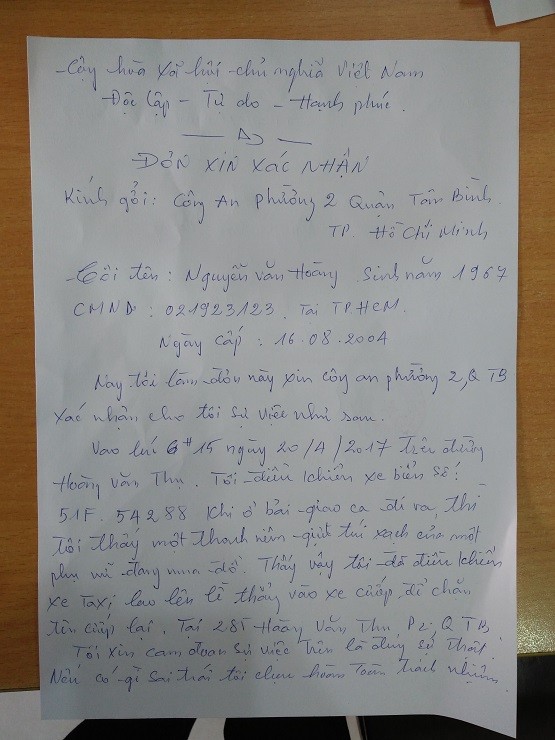 -Cộng hòa xã hội chủ nghĩa Việt Nam
Độc lập - Tự do - Hạnh phúc.
ĐƠN XIN XÁC NHẬN
Kính gởi: Công An phường 2 Quận Tân Bình.
TP. Hồ Chí Minh
-Tôi tên: Nguyễn Văn Hoàng. Sinh năm 1967
CMND: 021923123. Tại TP.HCM.
Ngày cấp: 16.08.2004
Nay tôi làm đơn này xin công an phường 2, Q TB
xác nhận cho tôi sự việc như sau.
Vào lúc 6H15 ngày 20/4/2017 trên đường
Hoàng Văn Thụ. Tôi điều khiển xe biển số:
51F. 54288 khi ở bãi giao ca đi ra, thì
tôi thấy một thanh niên giựt túi xách của một
phụ nữ đang mua đồ. Thấy vậy tôi đã điều khiển
xe Taxi lao lên lề thẳng vào xe cướp, để chăn
tên cướp lại. Tại 285 Hoàng Văn Thụ P2. Q TB.
Tôi xin cam đoan sự việc trên là đúng sự thật.
Nếu có gì sai trái tôi chịu hoàn toàn trách nhiệm.